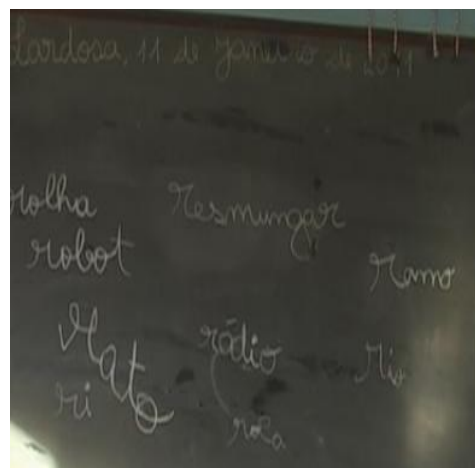 Lardosa, 11 de janeiro de 2011
rolha resmungar
robot
ramo
rato rádio rio
ri
roca